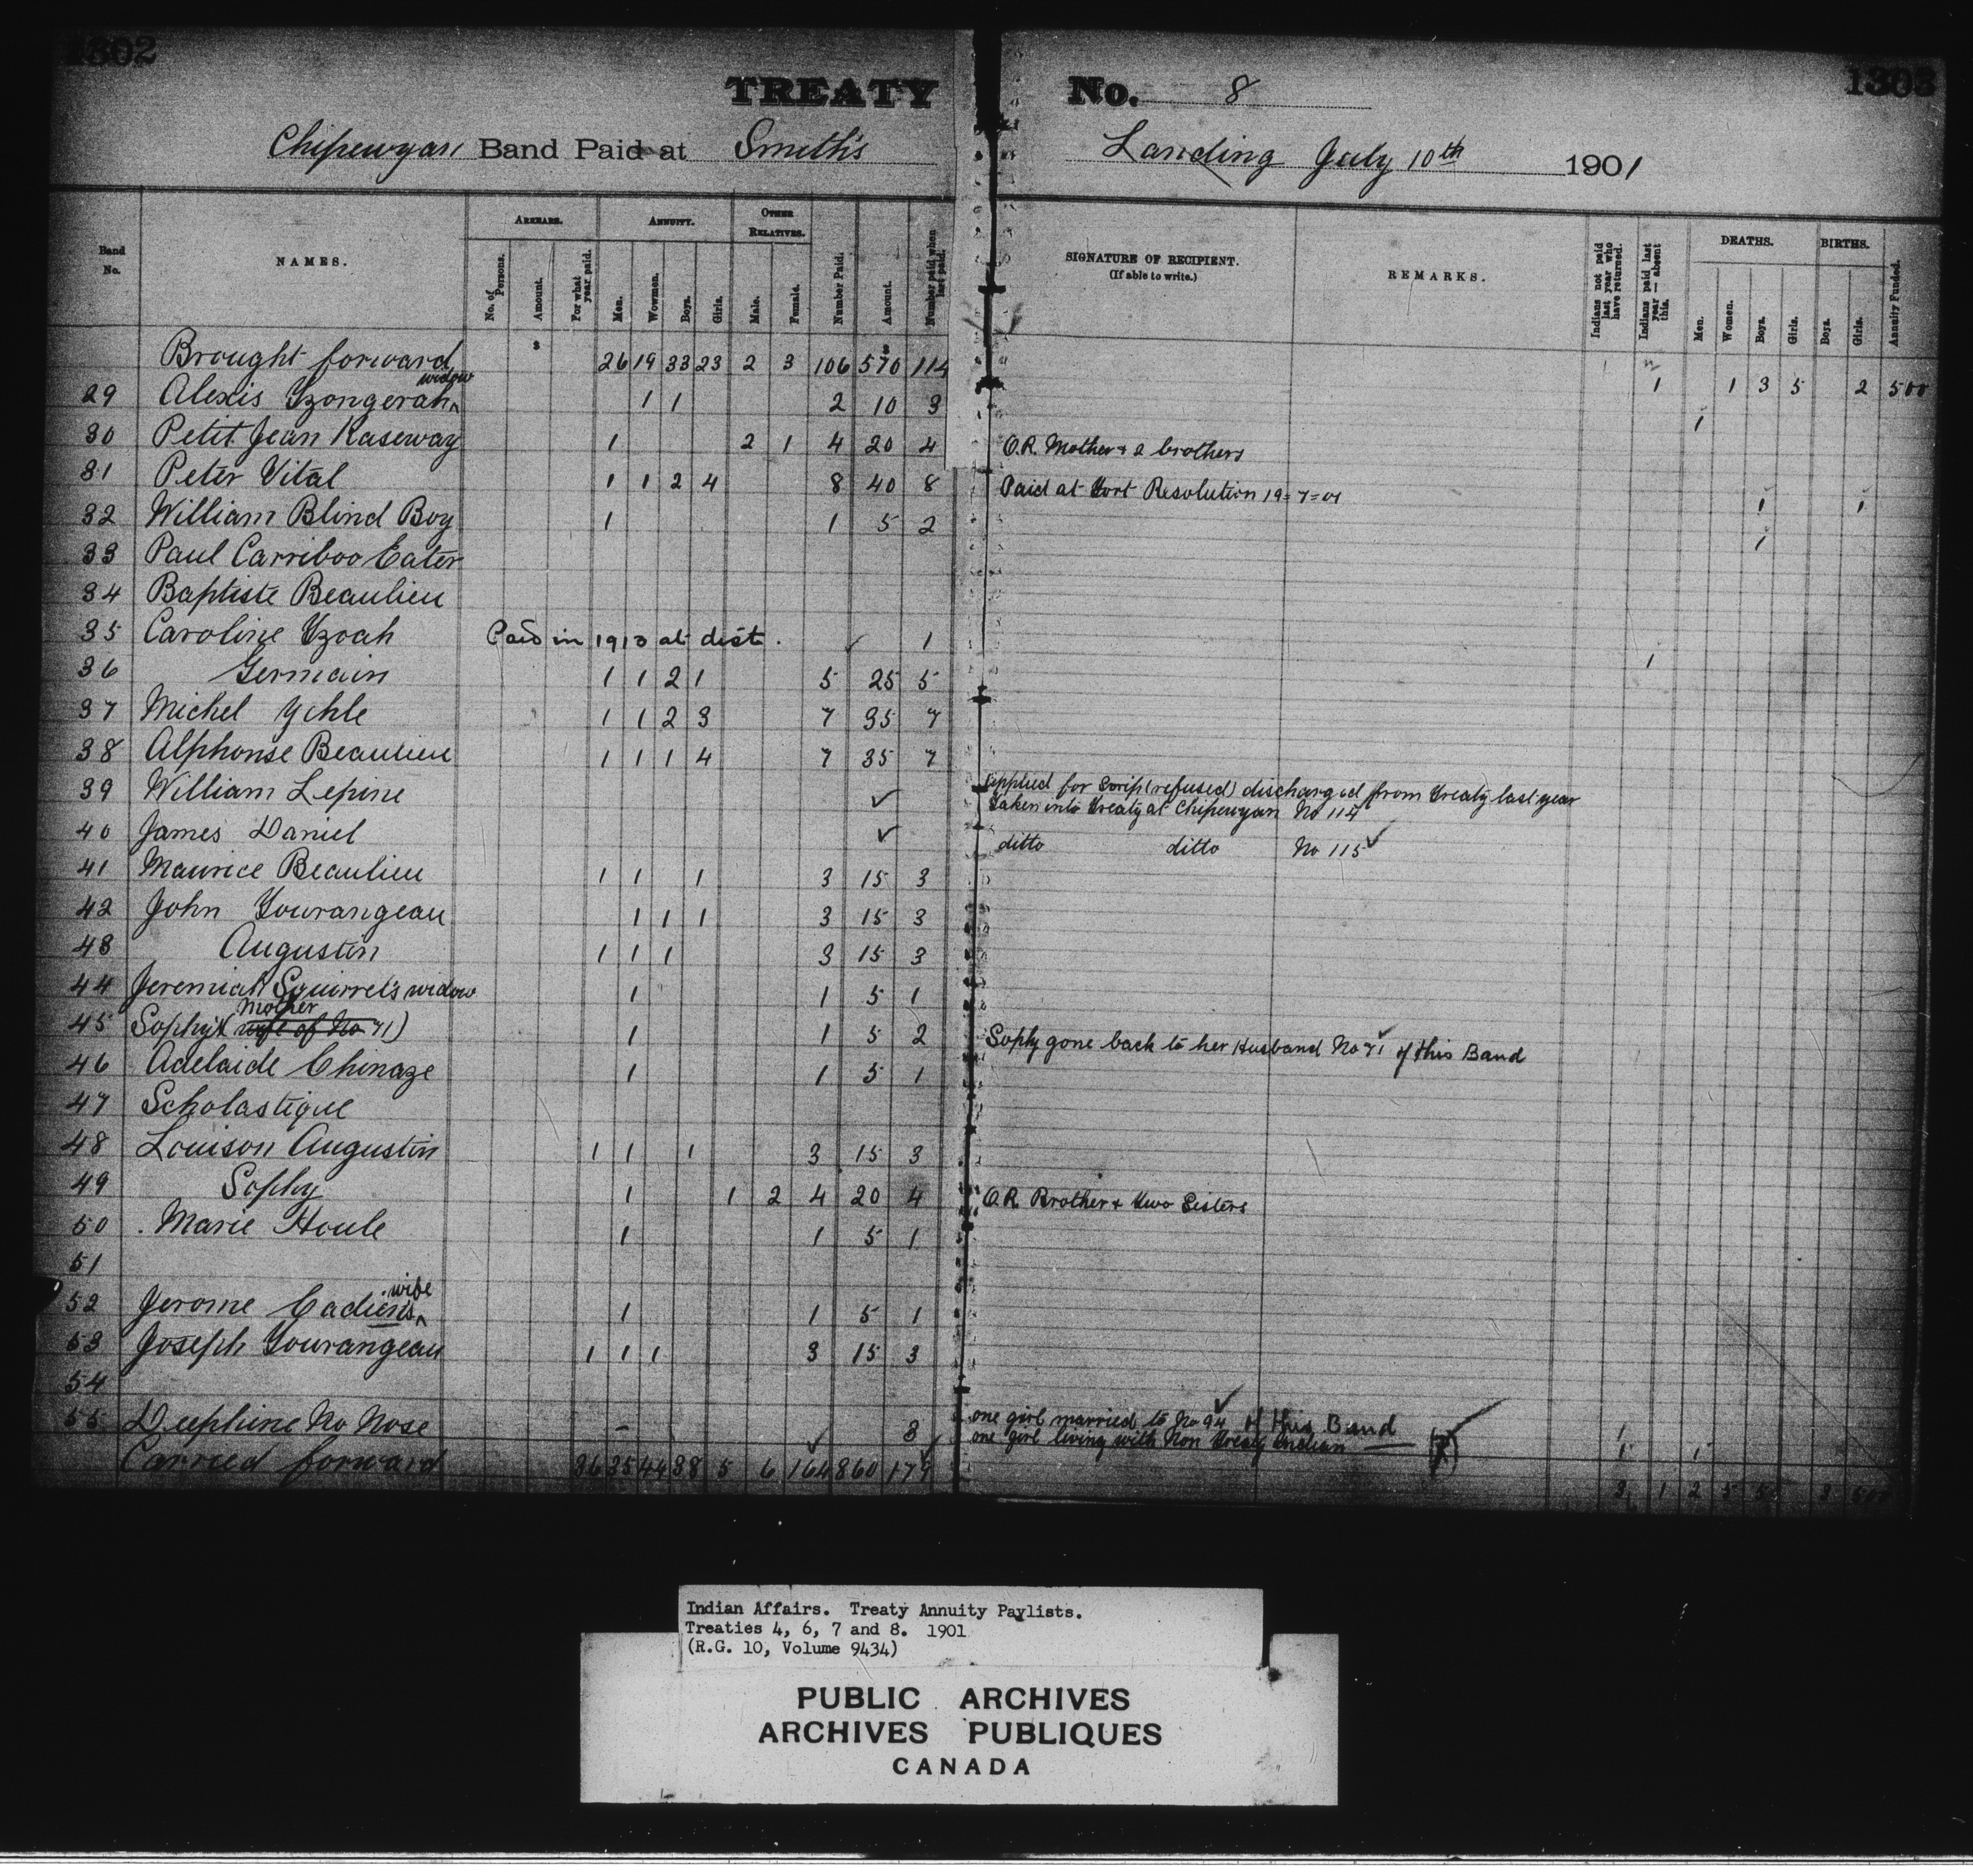 1302
1303
TREATY No. 8
Chipewyan Band Paid at Smith's Landing July 10th 1901
Band No.
NAMES.
ARREARS.
No. of Persons.
Amount.
For what year paid.
ANNUITY.
Men.
Women.
Boys.
Girls.
OTHER RELATIVES.
Male.
Female.
Number Paid.
Amount.
Number paid when last paid.
SIGNATURE OF RECIPIENT.
(If able to write.)
REMARKS.
Indians not paid last year who have returned.
Indians paid last year — absent this.
DEATHS.
Men.
Women.
Boys.
Girls.
BIRTHS.
Boys.
Girls.
Annuity Funded.
Brought forward $ 26 19 33 23 2 3 106 $ 570 114 1 1 3 5 2 500
29 Alexis Yzongerah widow 1 1 2 10 3 1
30 Petit Jean Kaseway 1 2 1 4 20 4 O.R. Mother & 2 brothers
31 Peter Vital 1 1 2 4 8 40 8 Paid at Fort Resolution 19-7-01 1 1
32 William Blind Boy 1 1 5 2 1
33 Paul Carriboo Eater
34 Baptiste Beaulieu
35 Caroline Yzoah Paid in 1913 at dist. ✓ 1 1
36 Germain 1 1 2 1 5 25 5
37 Michel 1 1 2 3 7 35 7
38 Alphonse Beaulieu 1 1 1 4 7 35 7
39 William Lepine ✓ applied for Scrip (refused) discharged from Treaty last year
Taken into Treaty at Chipewyan No 114
40 James Daniel ✓ ditto ditto No 115 ✓
41 Maurice Beaulieu 1 1 1 3 15 3
42 John Tourangeau 1 1 1 3 15 3
43 Augustin 1 1 1 3 15 3
44 Jeremiah Squirrel's widow 1 1 5 1
Mother
45 Sophy (wife of No 71) 1 1 5 2 Sophy gone back to her Husband No 71 of this Band
46 Adelaide Chinaze 1 1 5 1
47 Scholastique
48 Louison Augustin 1 1 1 3 15 3
49 Sophy 1 1 2 4 20 4 O.R. Brother & Two Sisters
50 Marie Houle 1 1 5 1
51
52 Jerome Cadien's wife 1 1 5 1
53 Joseph Tourangeau 1 1 1 3 15 3
54
55 Delphine No Nose 3 one girl married to No 94 of this Band
one girl living with Non Treaty Indian
Carried forward 36 35 44 38 5 6 164 860 179
Indian Affairs. Treaty Annuity Paylists.
Treaties 4, 6, 7 and 8. 1901
(R.G. 10, Volume 9434)
PUBLIC ARCHIVES
ARCHIVES PUBLIQUES
CANADA